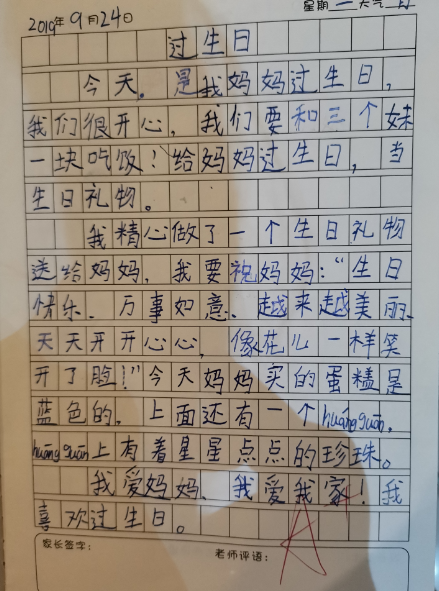 星期一 天气
2019年9月24日
过生日
今天。是我妈妈过生日，
我们很开心，我们要和三个妹
一块吃饭！给妈妈过生日，当
生日礼物。
我精心做了一个生日礼物
送给妈妈，我要祝妈妈：“生日
快乐、万事如意、越来越美丽、
天天开开心心，像花儿一样笑
开了脸！”今天妈妈买的蛋糕是
蓝色的，上面还有一个huáng guān，
huāng guān上有着星星点点的珍珠。
我爱妈妈、我爱我家！我
喜欢过生日。
家长签字：
老师评语：
A+